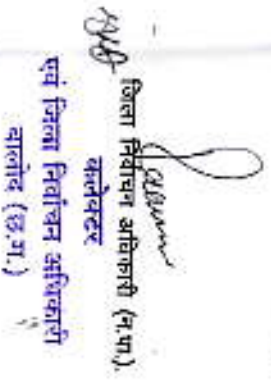 जिला निर्वाचन अधिकारी (न.पा.)
कलेक्टर
एवं जिला निर्वाचन अधिकारी
बालोद (छ.ग.)